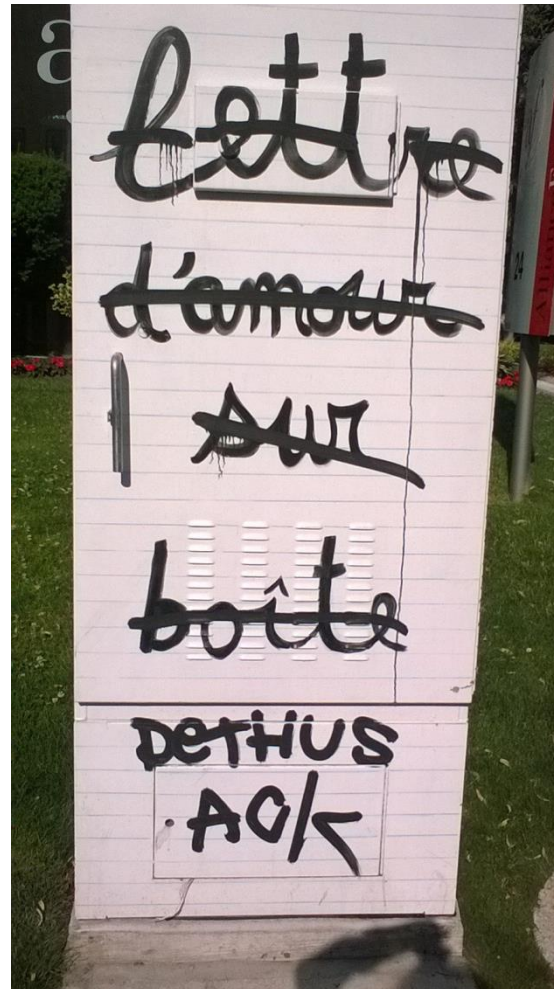 a
lettre
d'amour
sur
boîte
DeTHUS
ACK
24